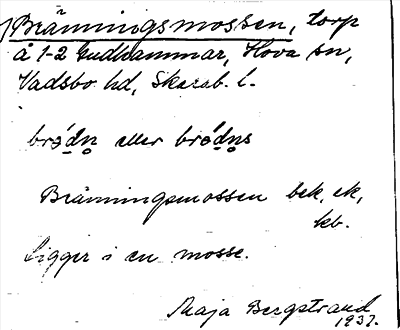 Bränningsmossen, torp
å 1-2 Gudhammar, Hova sn,
Vadsbo hd, Skarab. l.
eller
Bränningsmossen bek, ek,
kb.
Ligger i en mosse.
Maja Bergstrand
1937.